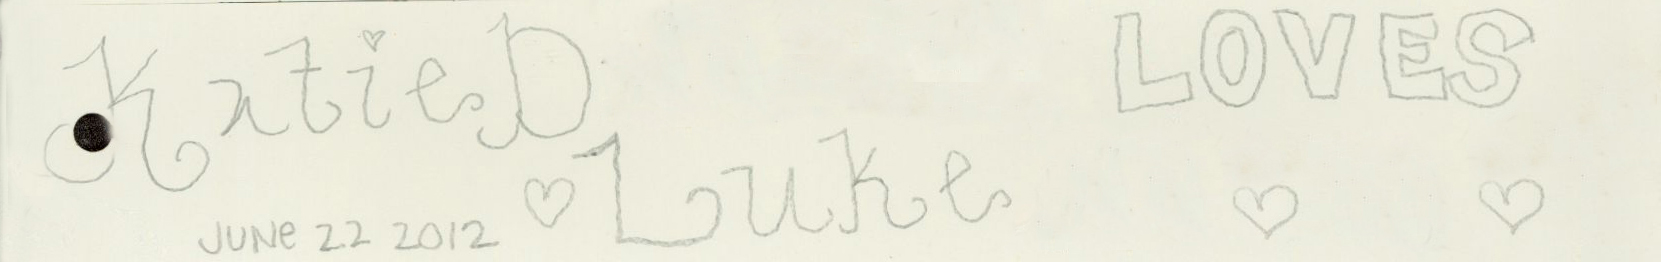 Katie D
LOVES
Luke
JUNE 22 2012